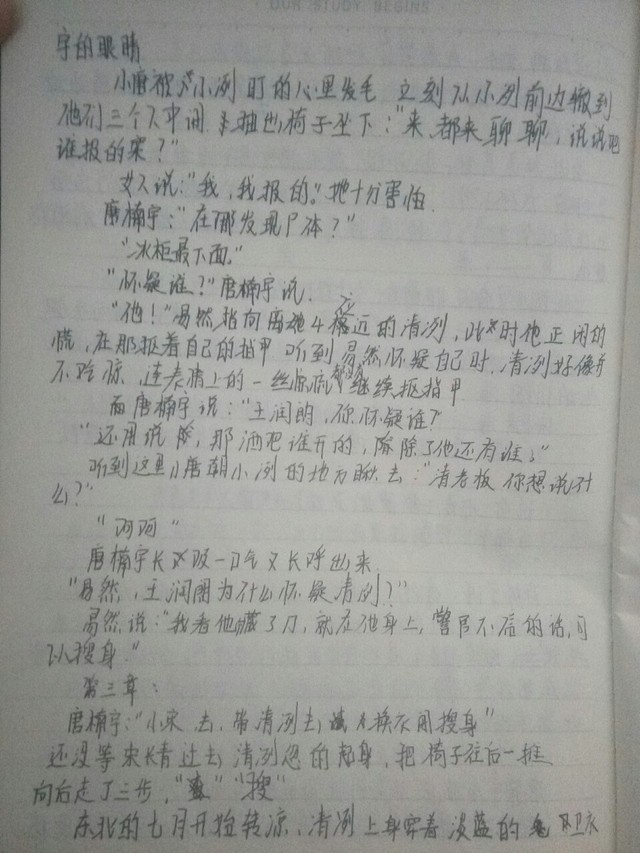 OUR STUDY BEGINS
宇的眼睛
小唐被小冽盯的心里发毛 立刻从小冽前边搬到
他们三个人中间 抽出椅子坐下："来,都来聊聊,说说吧
谁报的案？"
女人说："我,我报的。"她十分害怕.
唐楠宇："在哪发现尸体？"
"冰柜最下面."
"怀疑谁？"唐楠宇说.
"他！"易然指向离她4米远的清冽,此时他正闲的
慌,在那抠着自己的指甲 听到易然怀疑自己时,清冽好像并
不吃惊,连表情上的一丝 都没 继续抠指甲
而唐楠宇说："王润 ,你怀疑谁?"
"还用说 ,那酒吧谁开的, 除了他还有谁"
听到这里小唐朝小冽的地方瞅去："清老板 你想说什
么?"
"呵呵"
唐楠宇长吸一口气又长呼出来
"易然,王润 为什么怀疑清冽?"
易然说："我看他藏了刀,就在他身上,警官不信的话,可
以搜身."
第三章：
唐楠宇："小宋 去,带清冽去 换衣间搜身"
还没等宋长青过去,清冽忽的起身,把椅子往后一推
向后走了三步," " "搜"
东北的七月开始转凉,清冽上身穿着淡蓝的 卫衣